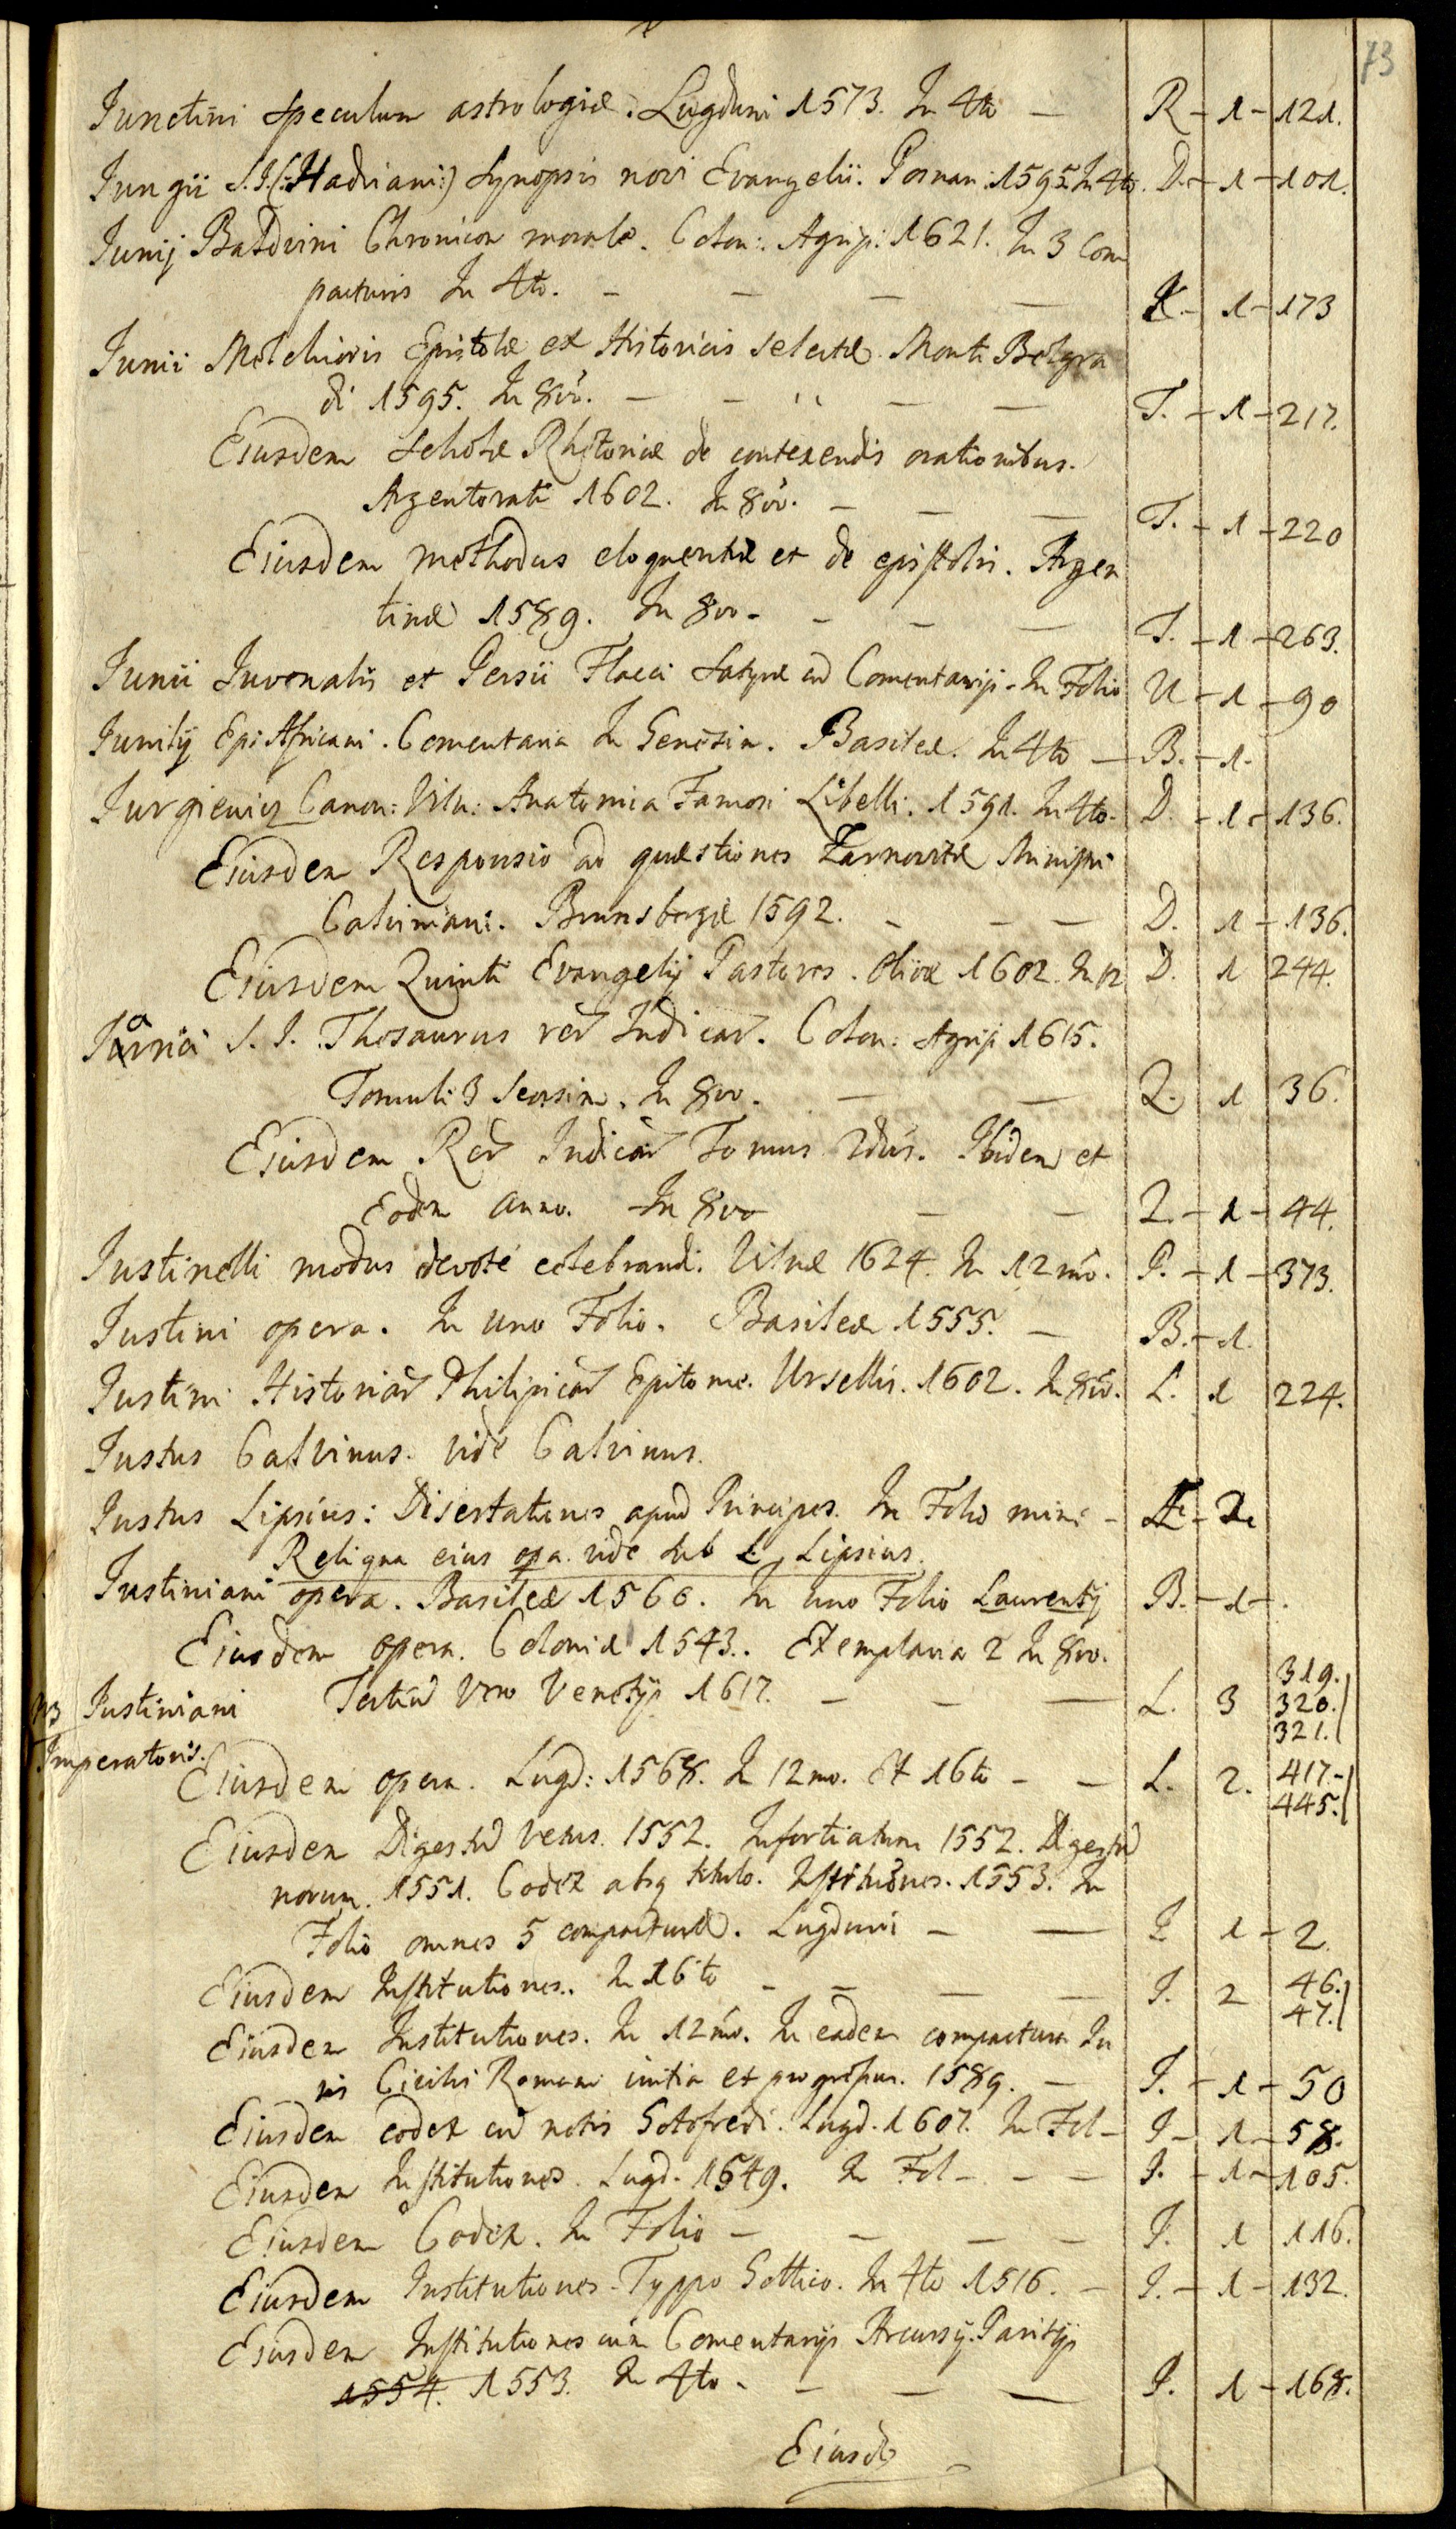 73
Junctini speculum astrologiæ. Lugduni 1573. In 4to — R - 1 - 121.
Jungii S.J. (:Hadriani:) Synopsis novi Evangelii. Posnan: 1595. In 4to. D. - 1 - 101.
Junij Balduini Chronicon morale. Colon: Agrip: 1621. In 3 Com
pacturis In 4to. - — — — K - 1 - 173
Junii Melchioris Epistolæ ex Historicis selectæ. Monte Belgra
di 1595. In 8vo. — - — — T. - 1 - 217.
Eiusdem Scholæ Rhetoricæ de contexendis orationibus.
Argentorati 1602. In 8vo. - — — T. - 1 - 220
Eiusdem methodus eloquentiæ et de epistolis. Argen
tinæ 1589. In 8vo - - — — T. - 1 - 263.
Junii Juvenalis et Persii Flacci Satyræ cū Comentarijs - In Folio U - 1 - 90
Junilij Epi Africani. Comentaria In Genesin. Basileæ. In 4to — B. - 1.
Jurgieuicz Canon: Viln: Anatomia Famosi Libelli. 1591. In 4to. D. - 1 - 136.
Eiusdem Responsio ad quæstiones Zarnovitæ Ministri
Calviniani. Brunsbergæ 1592. - — — D. 1 - 136.
Eiusdem Quinti Evangelij Pastores. Olivæ 1602. In 12 D. 1 244.
Jarrici S. J. Thesaurus rer̄ Indicar̄. Colon: Agrip 1615.
Tomuli 3 seorsim. In 8vo. — — Z. 1 36.
Eiusdem Rer̄ Indicar̄ Tomus 2dus. Ibidem et
Eodm anno. In 8vo — — Z. - 1 - 44.
Justinelli modus devoté celebrandi. Vilnæ 1624. In 12mo. P. - 1 - 373.
Justini opera. In uno Folio. Basileæ 1555. — B. - 1.
Justini Historiar̄ Philipicar̄ Epitome. Ursellis. 1602. In 8vo. L. 1 224.
Justus Calvinus. vide Calvinus.
Justus Lipsius: Disertationes apud Principes. In Folio mini -
Reliqua eius opa. vide sub L, Lipsius.
Justiniani opera. Basileæ 1560. In uno Folio Laurentij B. - 1 - .
Eiusdem opera. Coloniæ 1543.. Exemplaria 2 In 8vo.
Justiniani Tertiū vero Venetijs 1617. — — — L. 3 319. 320. 321.
Imperatoris.
Eiusdem opera. Lugd: 1568. In 12mo. Et 16to - — L. 2. 417. - 445.
Eiusdem Digestū vetus. 1552. Infortiatum 1552. Digestū
novum. 1551. Codex absq titulo. Institutiones. 1553. In
Folio omnes 5 compacturæ. Lugduni — — I 1 - 2.
Eiusdem Institutiones. In 16to - — — — I. 2 46. 47.
Eiusdem Institutiones. In 12mo. In eadem compactura Ju
ris Civilis Romani initia et progressus. 1589. — I. - 1 - 50
Eiusdem codex cū notis Gotofredi. Lugd. 1607. In Fol - I - 1 - 58.
Eiusdem Institutiones. Lugd. 1549. In Fol - - — I. - 1 - 105.
Eiusdem Codex. In Folio — — — — I. 1 116.
Eiusdem Institutiones - Typpo Gottico. In 4to 1516. — I. - 1 - 132.
Eiusdem Institutiones cum Comentarijs Arcursij. Parisijs
1554. 1553. In 4to - — — — I. 1 - 168.
Eiusdē